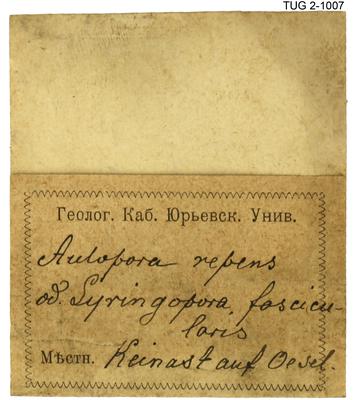 TUG 2-1007
Геолог. Каб. Юрьевск. Унив.
Aulopora repens
od. Syringopora fascicu-
laris
Мѣстн. Keinast auf Oesel.